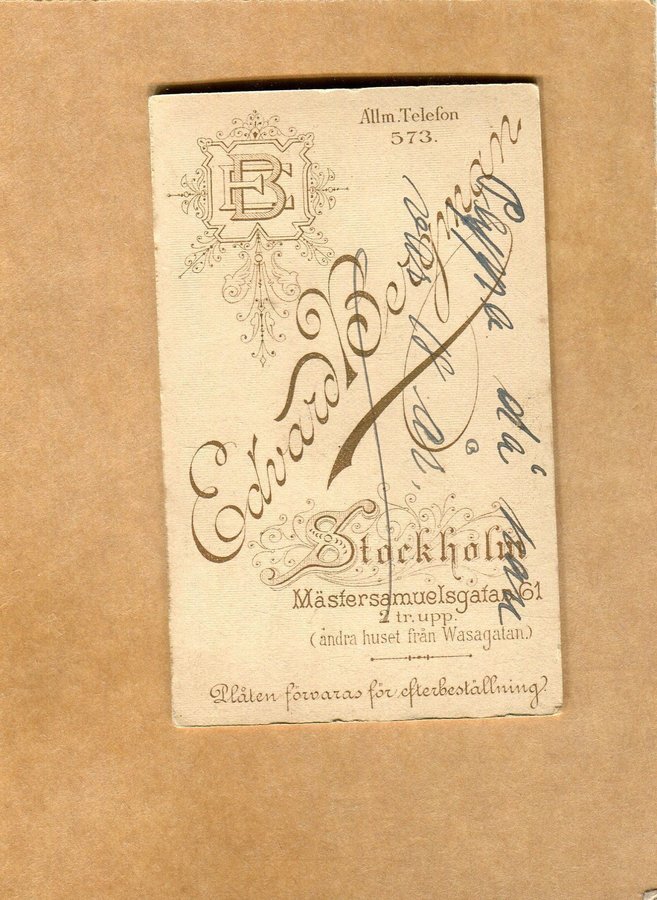 EB
Allm. Telefon
573.
Edvard
Stockholm
Mästersamuelsgatan 61
2 tr. upp.
(andra huset från Wasagatan.)
Plåten förvaras för efterbeställning.
då hon
var 18 år.